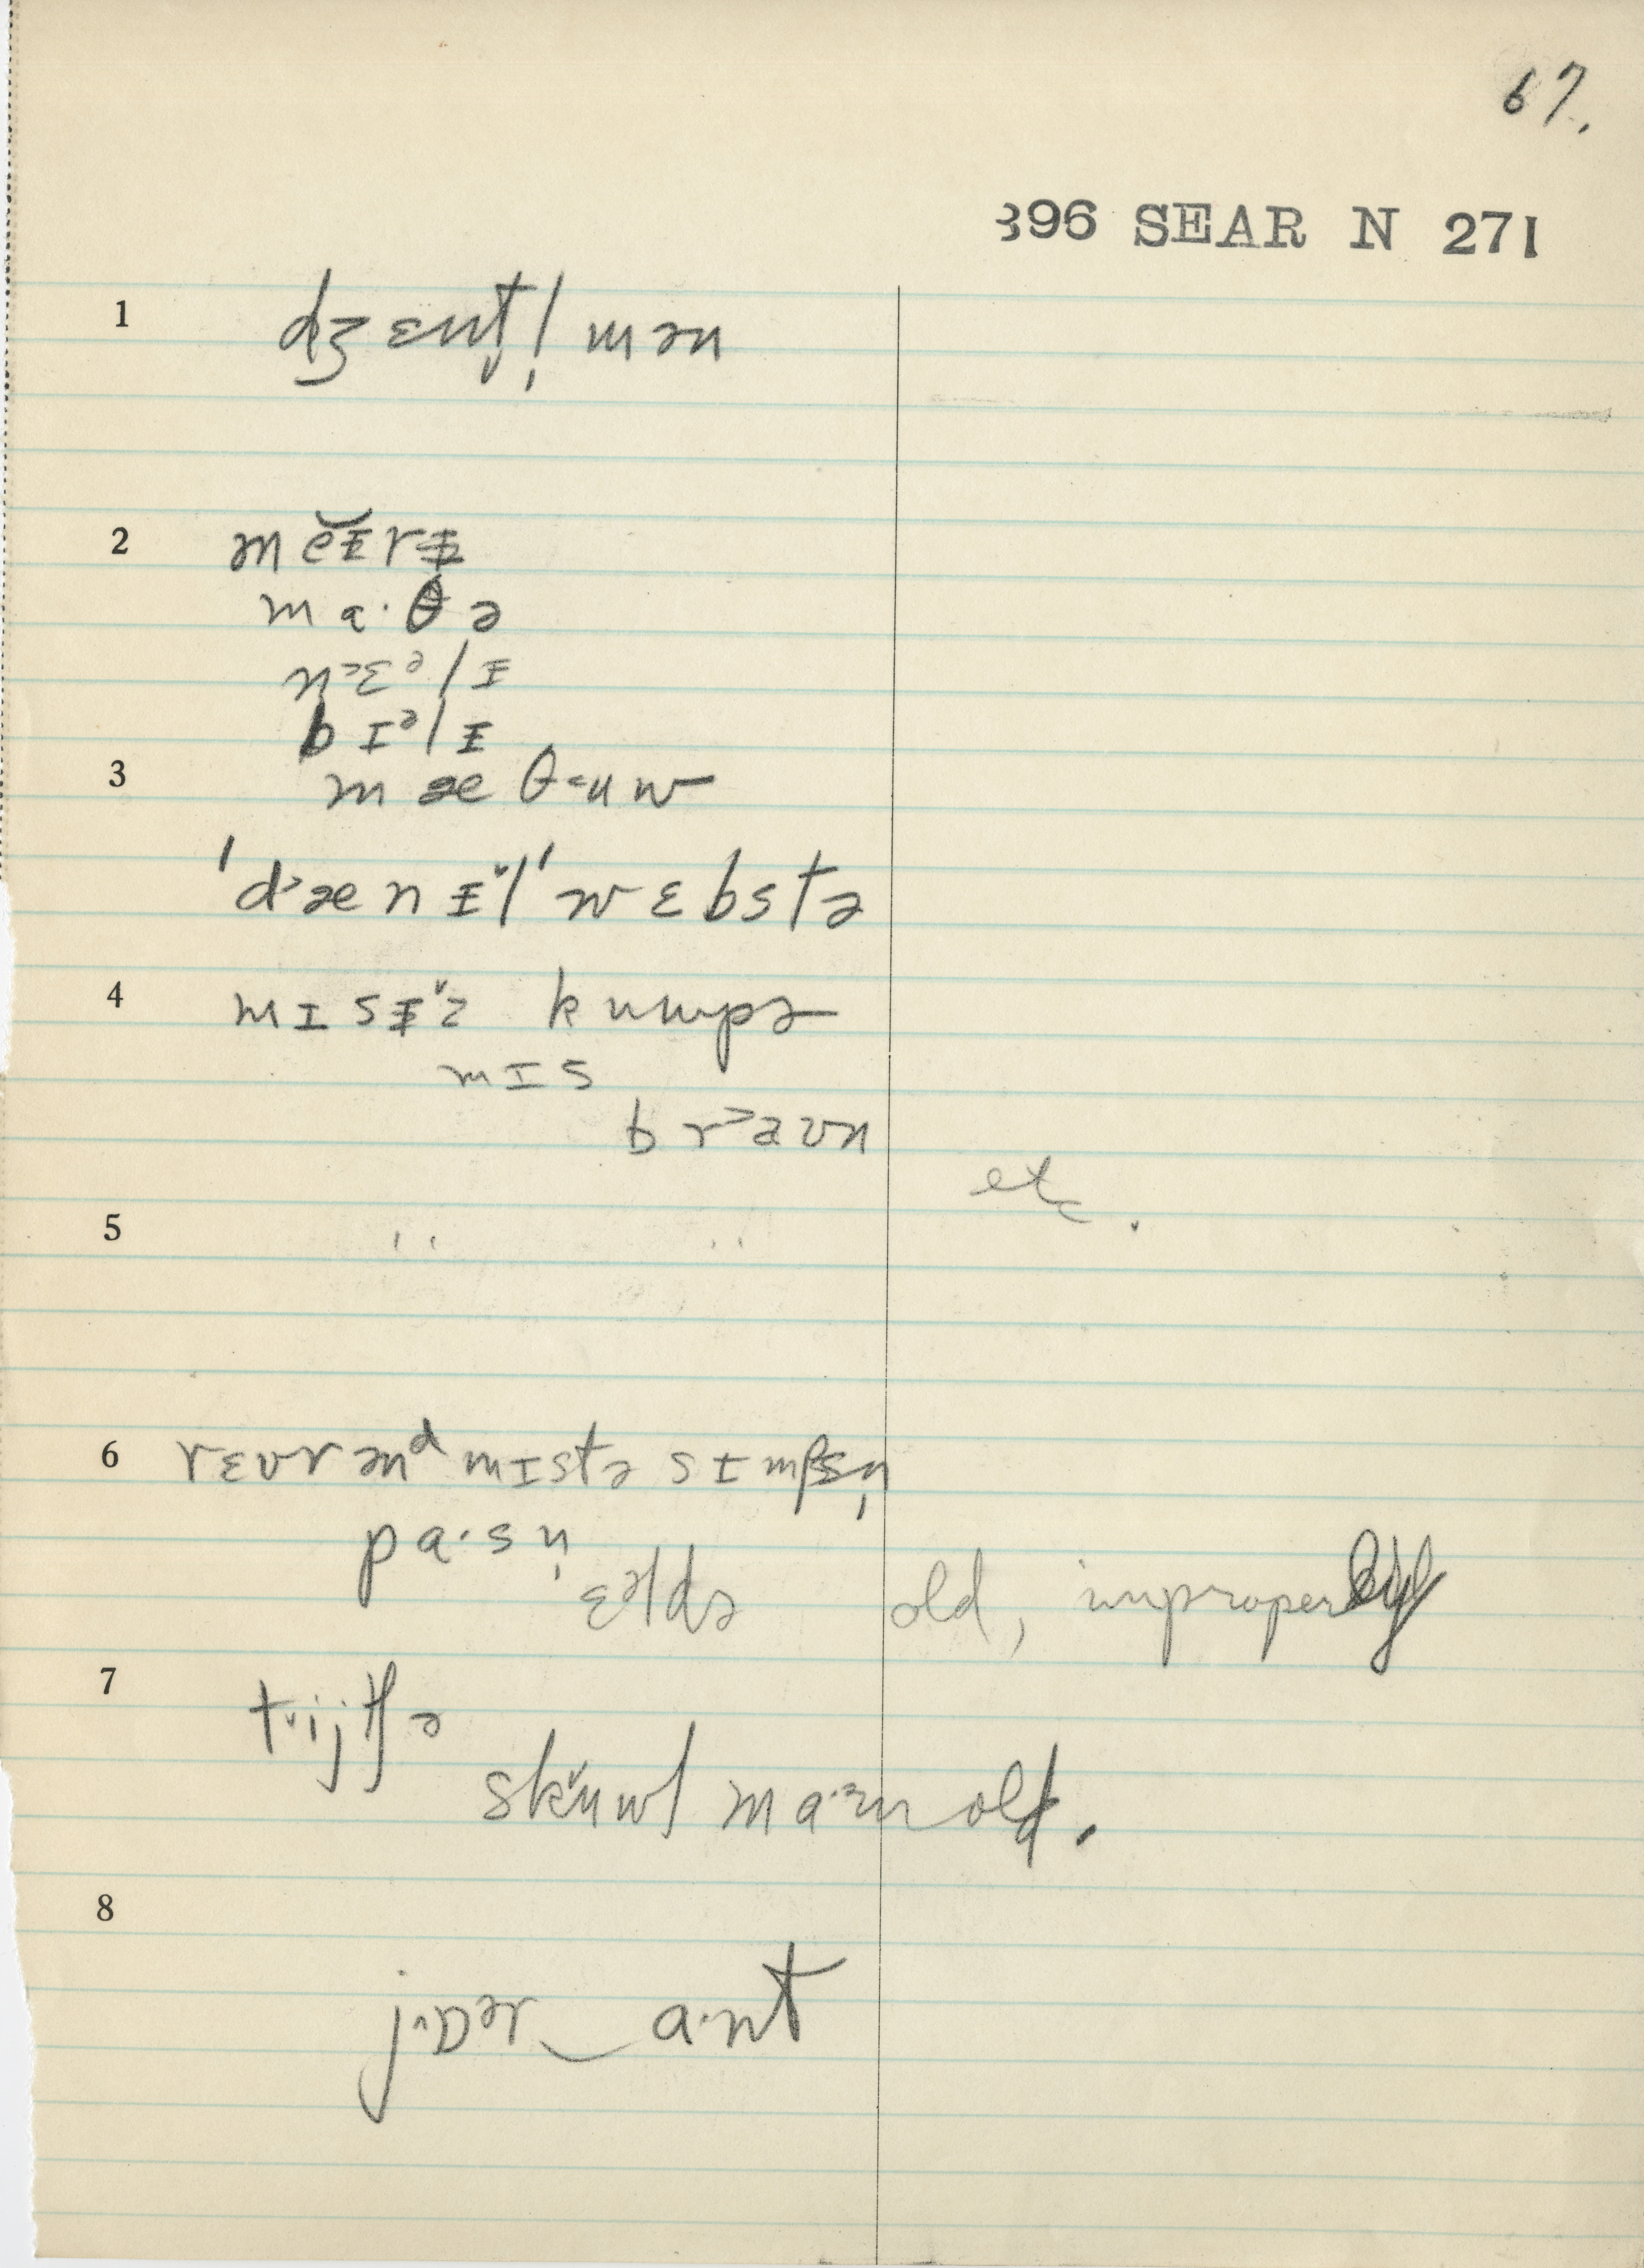 67.
396 SEAR N 271
1 dʒɛnt̬l̩mən
2 mĕɪ̵rɪ̵
ma·θə
n˃ɛᵊlɪ̵
bɪᵊlɪ̵
3 mæθ˂uw
'd˃ænɪ̵˅l'wɛbstə
4 mɪsɪ̵˅z kumpə
mɪs
br˃aʊn
etc.
5 '' ''
6 rɛvrənᵈ mɪstə sɪmpsn̩
pa·sn̩
ɛᵊldə old, improperly
7 t˅ijtʃə
sk˅uwl ma·m old.
8
j·^ɒᵊr‿a·nt